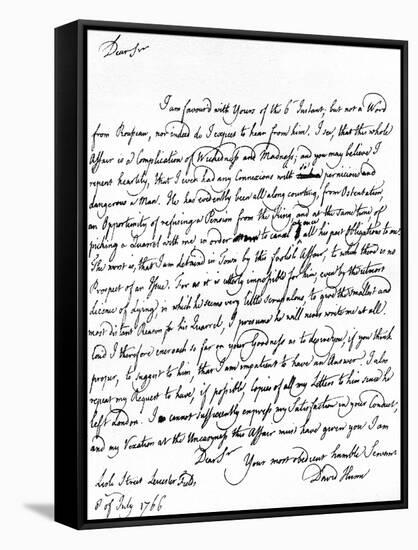 Dear Sir
I am favoured with Yours of the 6th Instant; but not a Word
from Rousseau, nor indeed do I expect to hear from him. I see, that this whole
Affair is a Complication of Wickedness and Madness; and you may believe I
repent heartily, that I ever had any Connexions with so pernicious and
dangerous a Man. He has evidently been all along courting, from Ostentation,
an Opportunity of refusing a Pension from the King, and at the same time of
picking a Quarrel with me, in order to cancel at once all his past Obligations to me.
The worst is, that I am detained in Town by this foolish Affair, to which there is no
Prospect of an Issue. For as it is utterly impossible for him, even by the utmost
decence of lying, in which he seems very little scrupulous, to give the smallest and
most distant Reason for his Quarrel, I presume he will never write me at all.
Coud I therefore encroach so far on your Goodness as to desire you, if you think
proper, to suggest to him, that I am impatient to have an Answer. I also
repeat my Request to have, if possible, Copies of all my Letters to him since he
left London. I cannot sufficiently express my Satisfaction in your Conduct,
and my Vexation at the Uneasyness this Affair must have given you I am
Dear Sir
Your most obedient humble Servant
David Hume
Lisle Street Leicester Fields
8 of July 1766